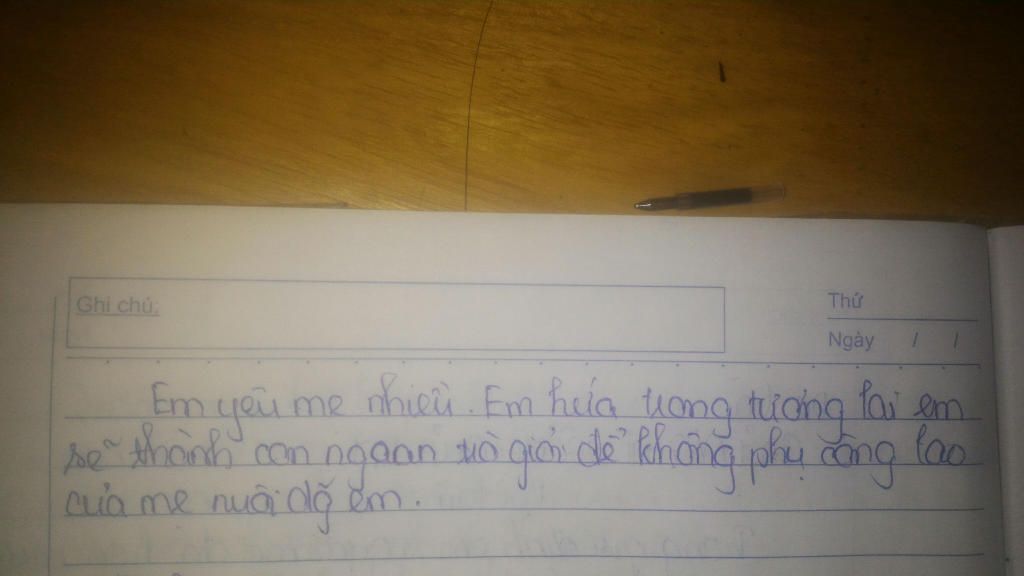 Ghi chú:
Thứ
Ngày / /
Em yêu mẹ nhiều. Em hứa trong tương lai em
sẽ thành con ngoan trò giỏi để không phụ công lao
của mẹ nuôi dỗ em.